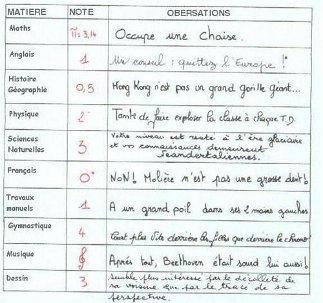 MATIERE NOTE OBERSATIONS
Maths π=3,14 Occupe une chaise.
Anglais 1 Un conseil : quittez l'Europe !
Histoire
Géographie 0,5 Hong Kong n'est pas un grand gorille géant...
Physique 2⁻ Tente de faire exploser la classe à chaque T.D.
Sciences
Naturelles 3 Votre niveau est resté à l'ère glaciaire
et vos connaissances demeurent
neandertaliennes.
Français 0⁺ NON! Molière n'est pas une grosse dent!
Travaux
manuels 1 A un grand poil dans ses 2 mains gauches
Gymnastique 4 Court plus vite derrière les filles que derrière le chrono!
Musique Après tout, Beethoven était sourd lui aussi!
Dessin 3 Semble plus intéressé par le décolleté de
sa voisine que par le tracé de sa
perspective.